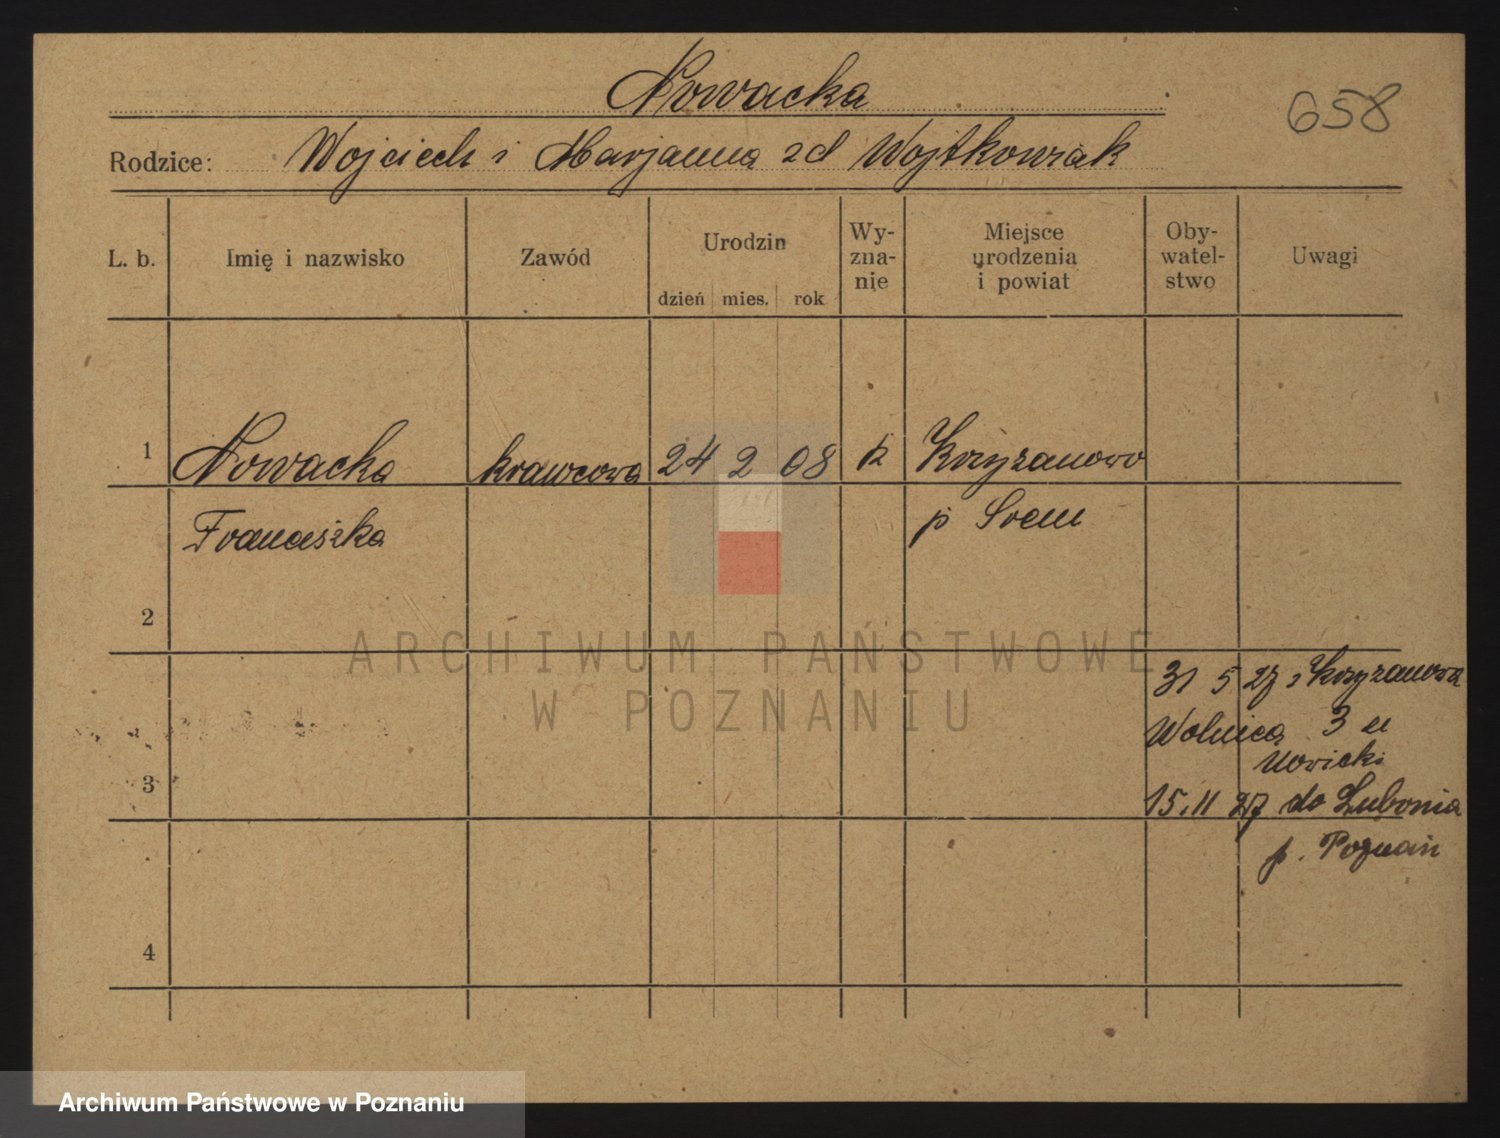 Nowacka
658
Rodzice: Wojciech i Marjanna zd Wojtkowiak
L. b. Imię i nazwisko Zawód Urodzin dzień mies. rok Wy-zna-nie Miejsce urodzenia i powiat Oby-watel-stwo Uwagi
1 Nowacka krawcowa 24 2 08 k Krzyżanowo
Franciszka p Śrem
2
31 5 27 z Krzyżanowa
Wolnica 3 u
Nowicki
3
15.11 27 do Lubonia
p. Poznań
4
ARCHIWUM PAŃSTWOWE
W POZNANIU
Archiwum Państwowe w Poznaniu